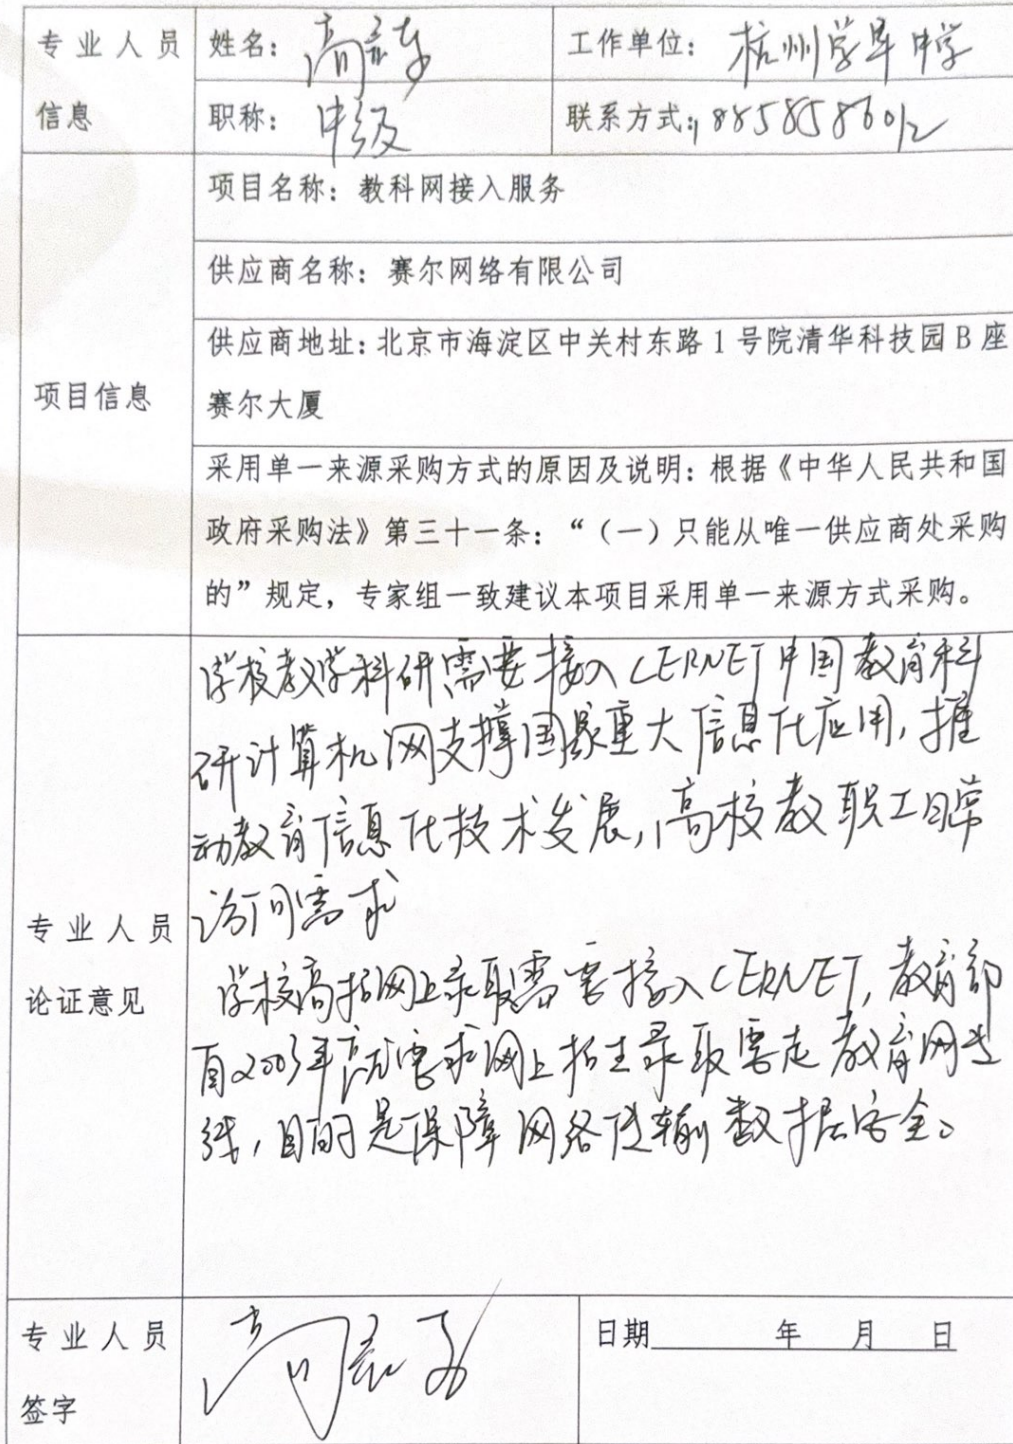 专业人员 姓名：高 工作单位：杭州学军中学
信息 职称：中级 联系方式：18858585860
项目名称：教科网接入服务
供应商名称：赛尔网络有限公司
供应商地址：北京市海淀区中关村东路1号院清华科技园B座
项目信息 赛尔大厦
采用单一来源采购方式的原因及说明：根据《中华人民共和国
政府采购法》第三十一条：“（一）只能从唯一供应商处采购
的”规定，专家组一致建议本项目采用单一来源方式采购。
学校教学科研需要接入CERNET中国教育科
研计算机网支撑国家重大信息化应用，推
动教育信息化技术发展，高校教职工日常
专业人员 访问需求
论证意见 学校高招网上录取需要接入CERNET，教育部
自2003年就要求网上招生录取要走教育网专
线，目的是保障网络传输数据安全。
专业人员 高 日期 年 月 日
签字